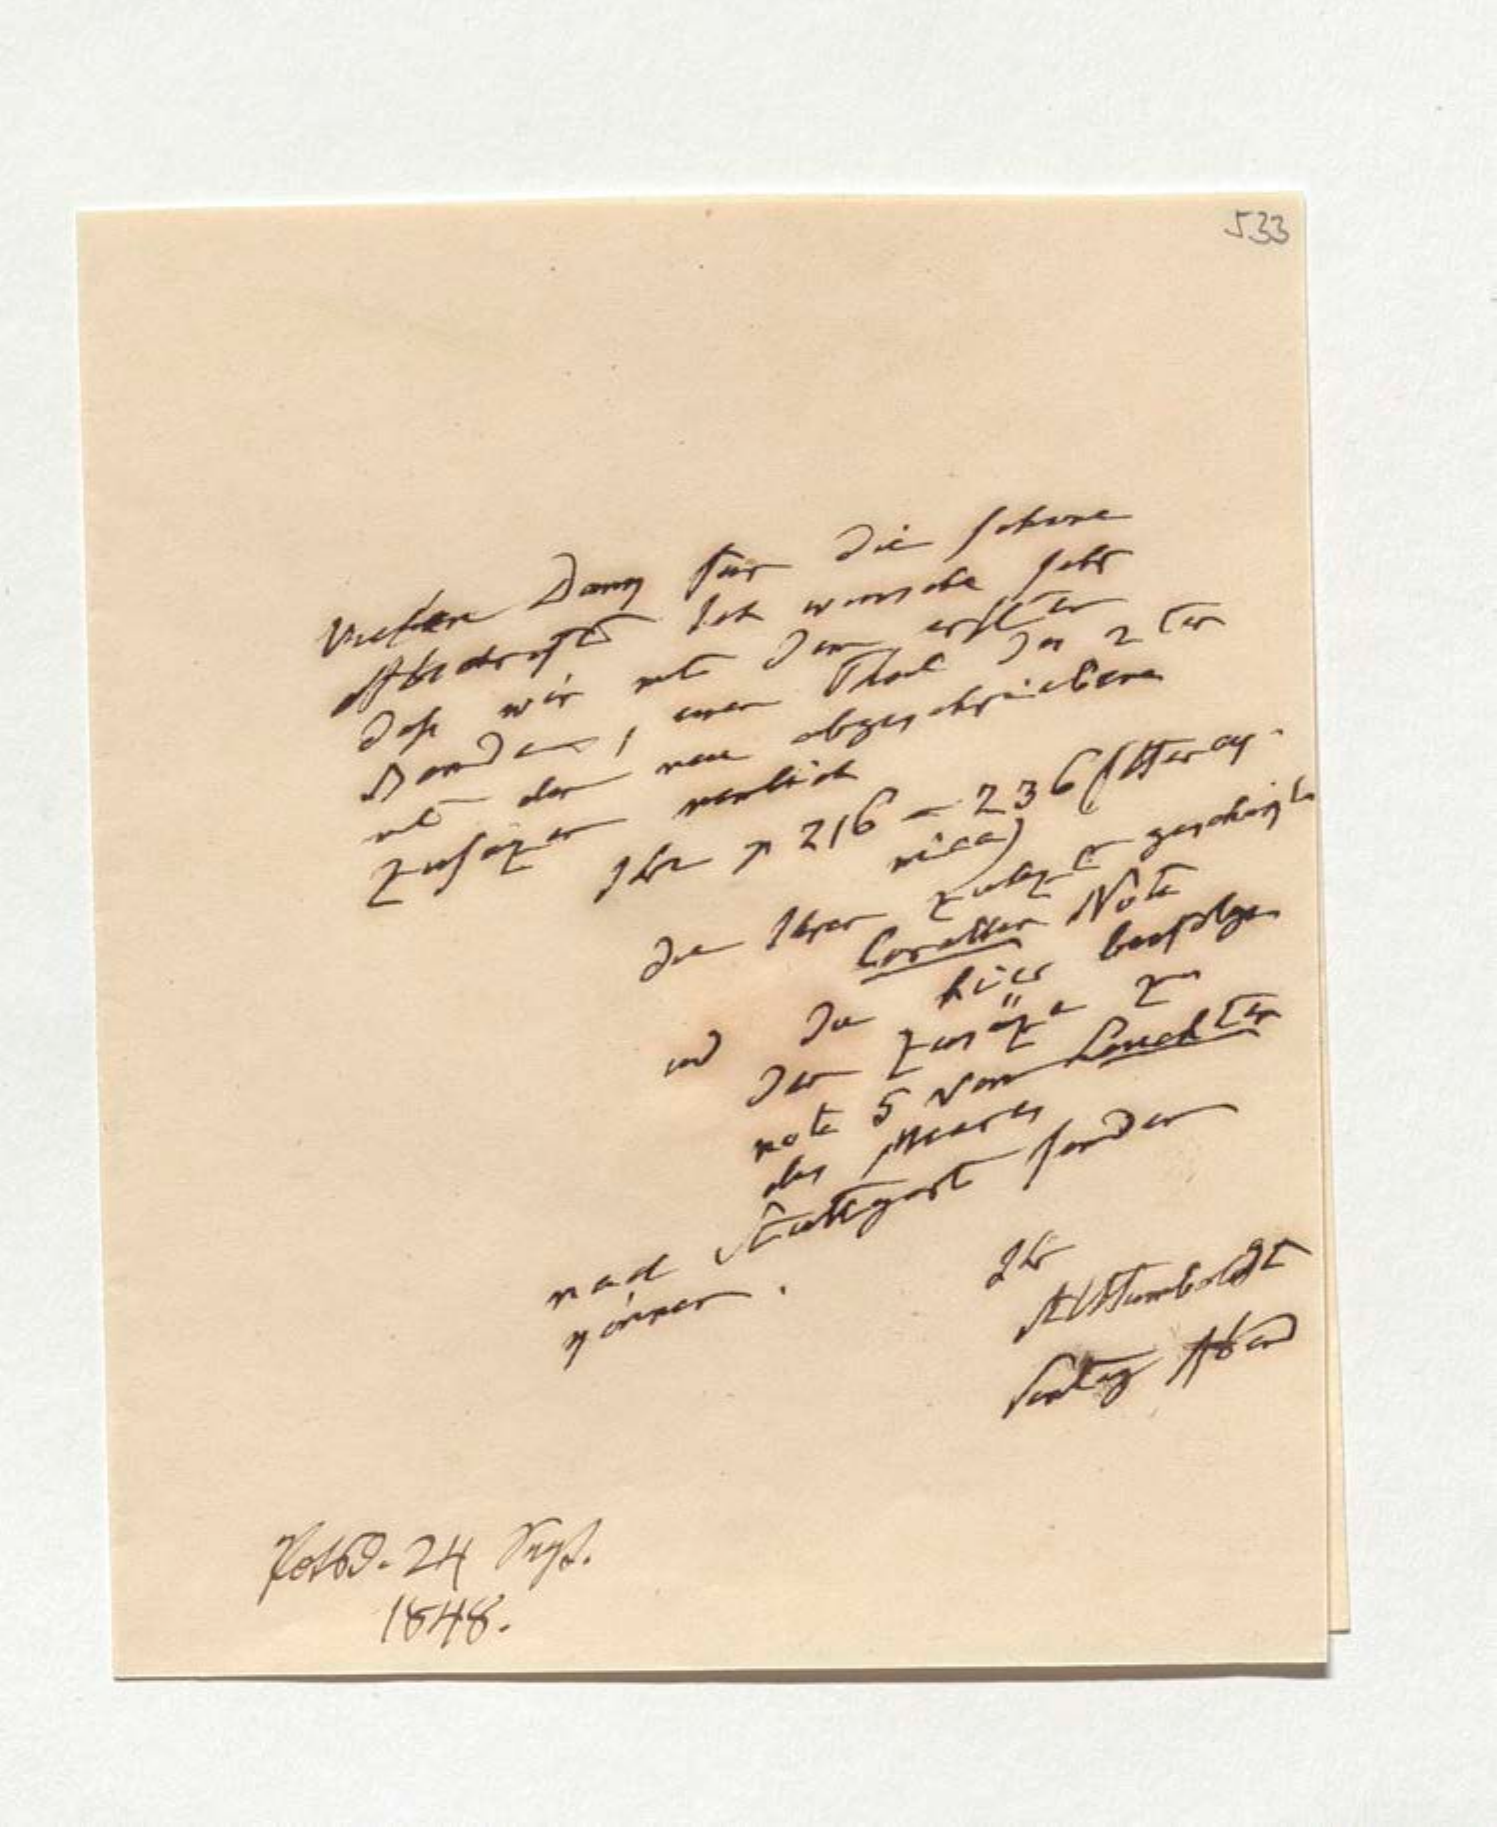 533
Vielen Dank für die schöne
Abschrift Ich wünsche sehr
daß wir mit dem ersten
Bande, einen Theil des 2ten
mit den neu abgeschriebenen
Zusäzen nemlich
Ihr p 216 – 236 (Atter oy-
nica)
die Ihnen zulezt geschikte
Corallen Note
und die hier beifolgen
den Zusäze zu
note 5 vom Leuchten
des Meeres
nach Stuttgart senden
können.
Ihr
AvHumboldt
Sontag Abend
Potsd. 24 Sept.
1848.